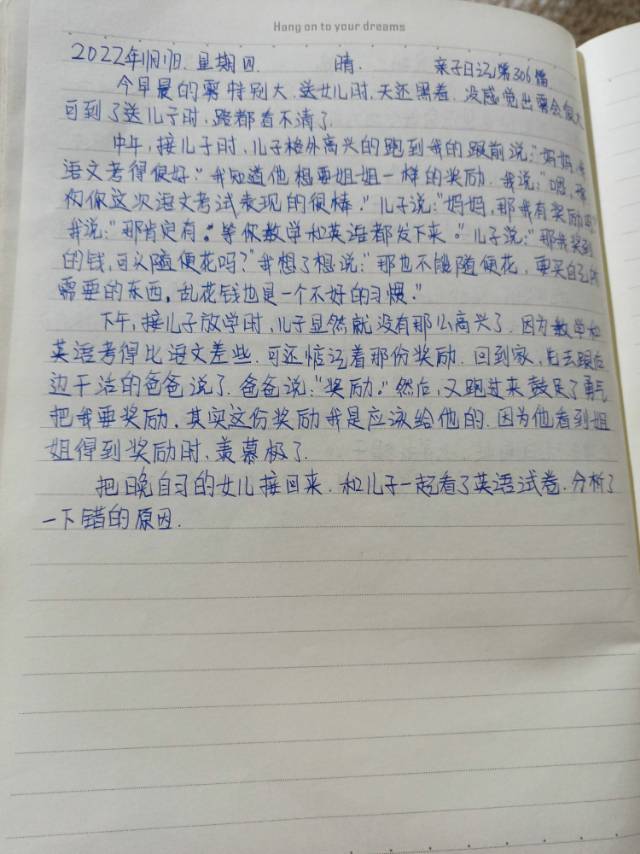 Hang on to your dreams
2022年11月17日. 星期四. 晴. 亲子日记第306篇.
今早晨的雾特别大.送女儿时.天还黑着.没感觉出雾会很大
可到了送儿子时,路都看不清了.
中午,接儿子时,儿子格外高兴的跑到我的跟前说:"妈妈,
语文考得很好."我知道他想要姐姐一样的奖励.我说:"嗯,
你这次语文考试表现的很棒."儿子说:"妈妈,那我有奖励吗
我说:"那肯定有。等你数学和英语都发下来."儿子说:"那我奖到
的钱,可以随便花吗?"我想了想说:"那也不能随便花,要买自己
需要的东西,乱花钱也是一个不好的习惯."
下午,接儿子放学时,儿子显然就没有那么高兴了.因为数学和
英语考得比语文差些.可还惦记着那份奖励.回到家,先去跟后
边干活的爸爸说了.爸爸说:"奖励."然后,又跑过来鼓足了勇气
把我要奖励.其实这份奖励我是应该给他的.因为他看到姐
姐得到奖励时,羡慕极了.
把晚自习的女儿接回来.和儿子一起看了英语试卷.分析了
一下错的原因.